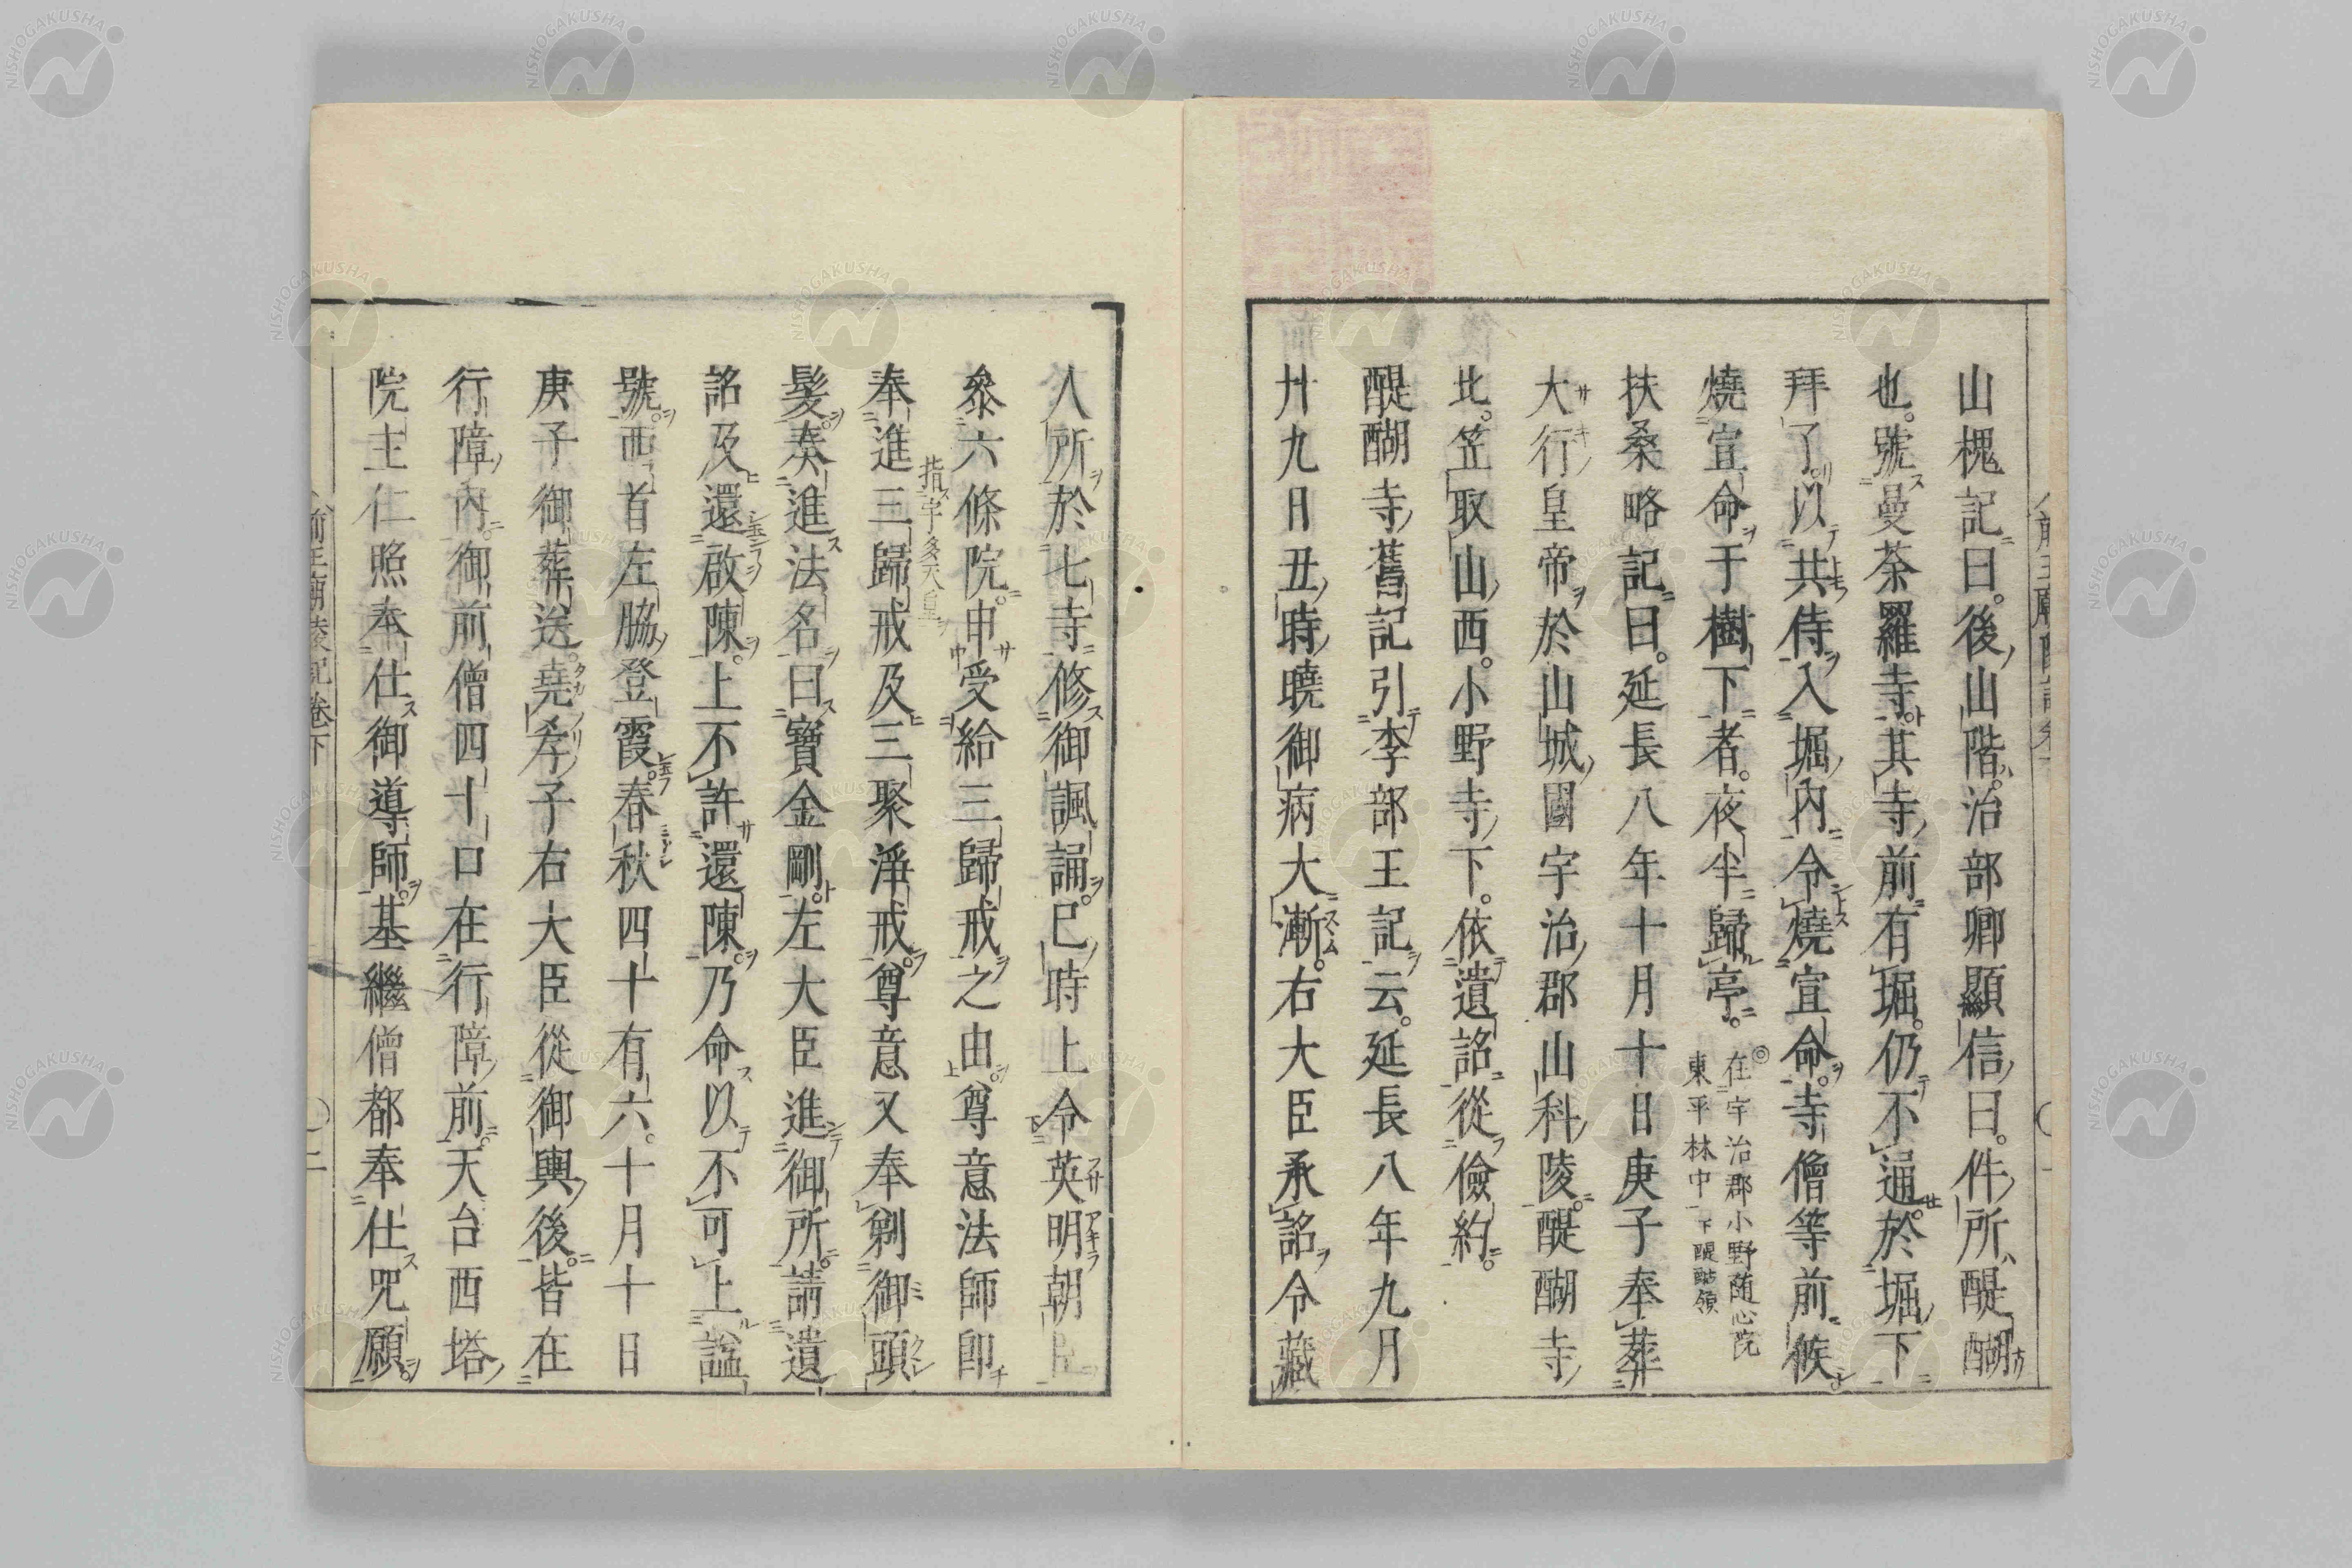 山槐記曰。後山階。治部卿顯信曰。件所醍醐
也。號曼荼羅寺其寺前有堀。仍不通於堀下
拜了以共侍入堀內令燒宣命。寺僧等前候
燒宣命于樹下者。夜半歸亭。
在宇治郡小野随心院
東平林中下醍醐領
扶桑略記曰。延長八年十月十日庚子奉葬
大行皇帝於山城國宇治郡山科陵。醍醐寺
北。笠取山西。小野寺下。依遺詔從儉約。
醍醐寺舊記引李部王記云。延長八年九月
廾九日丑時曉御病大漸。右大臣承詔令藏
人所於七寺修御諷誦。已時上令英明朝臣
叅六條院。申受給三歸戒之由。尊意法師卽
指宇多天皇
奉進三歸戒及三聚淨戒。尊意又奉剃御頭
髮。奏進法名曰寶金剛。左大臣進御所。請遺
詔及還啟陳。上不許還陳。乃命以不可上謚
號。西首左脇登霞。春秋四十有六。十月十日
庚子御葬送。堯孝子右大臣從御輿後。皆在
行障內。御前僧四十口在行障前。天台西塔
院主仁照奉仕御導師。基繼僧都奉仕咒願。
前王廟陵記卷下
二
NISHOGAKUSHA